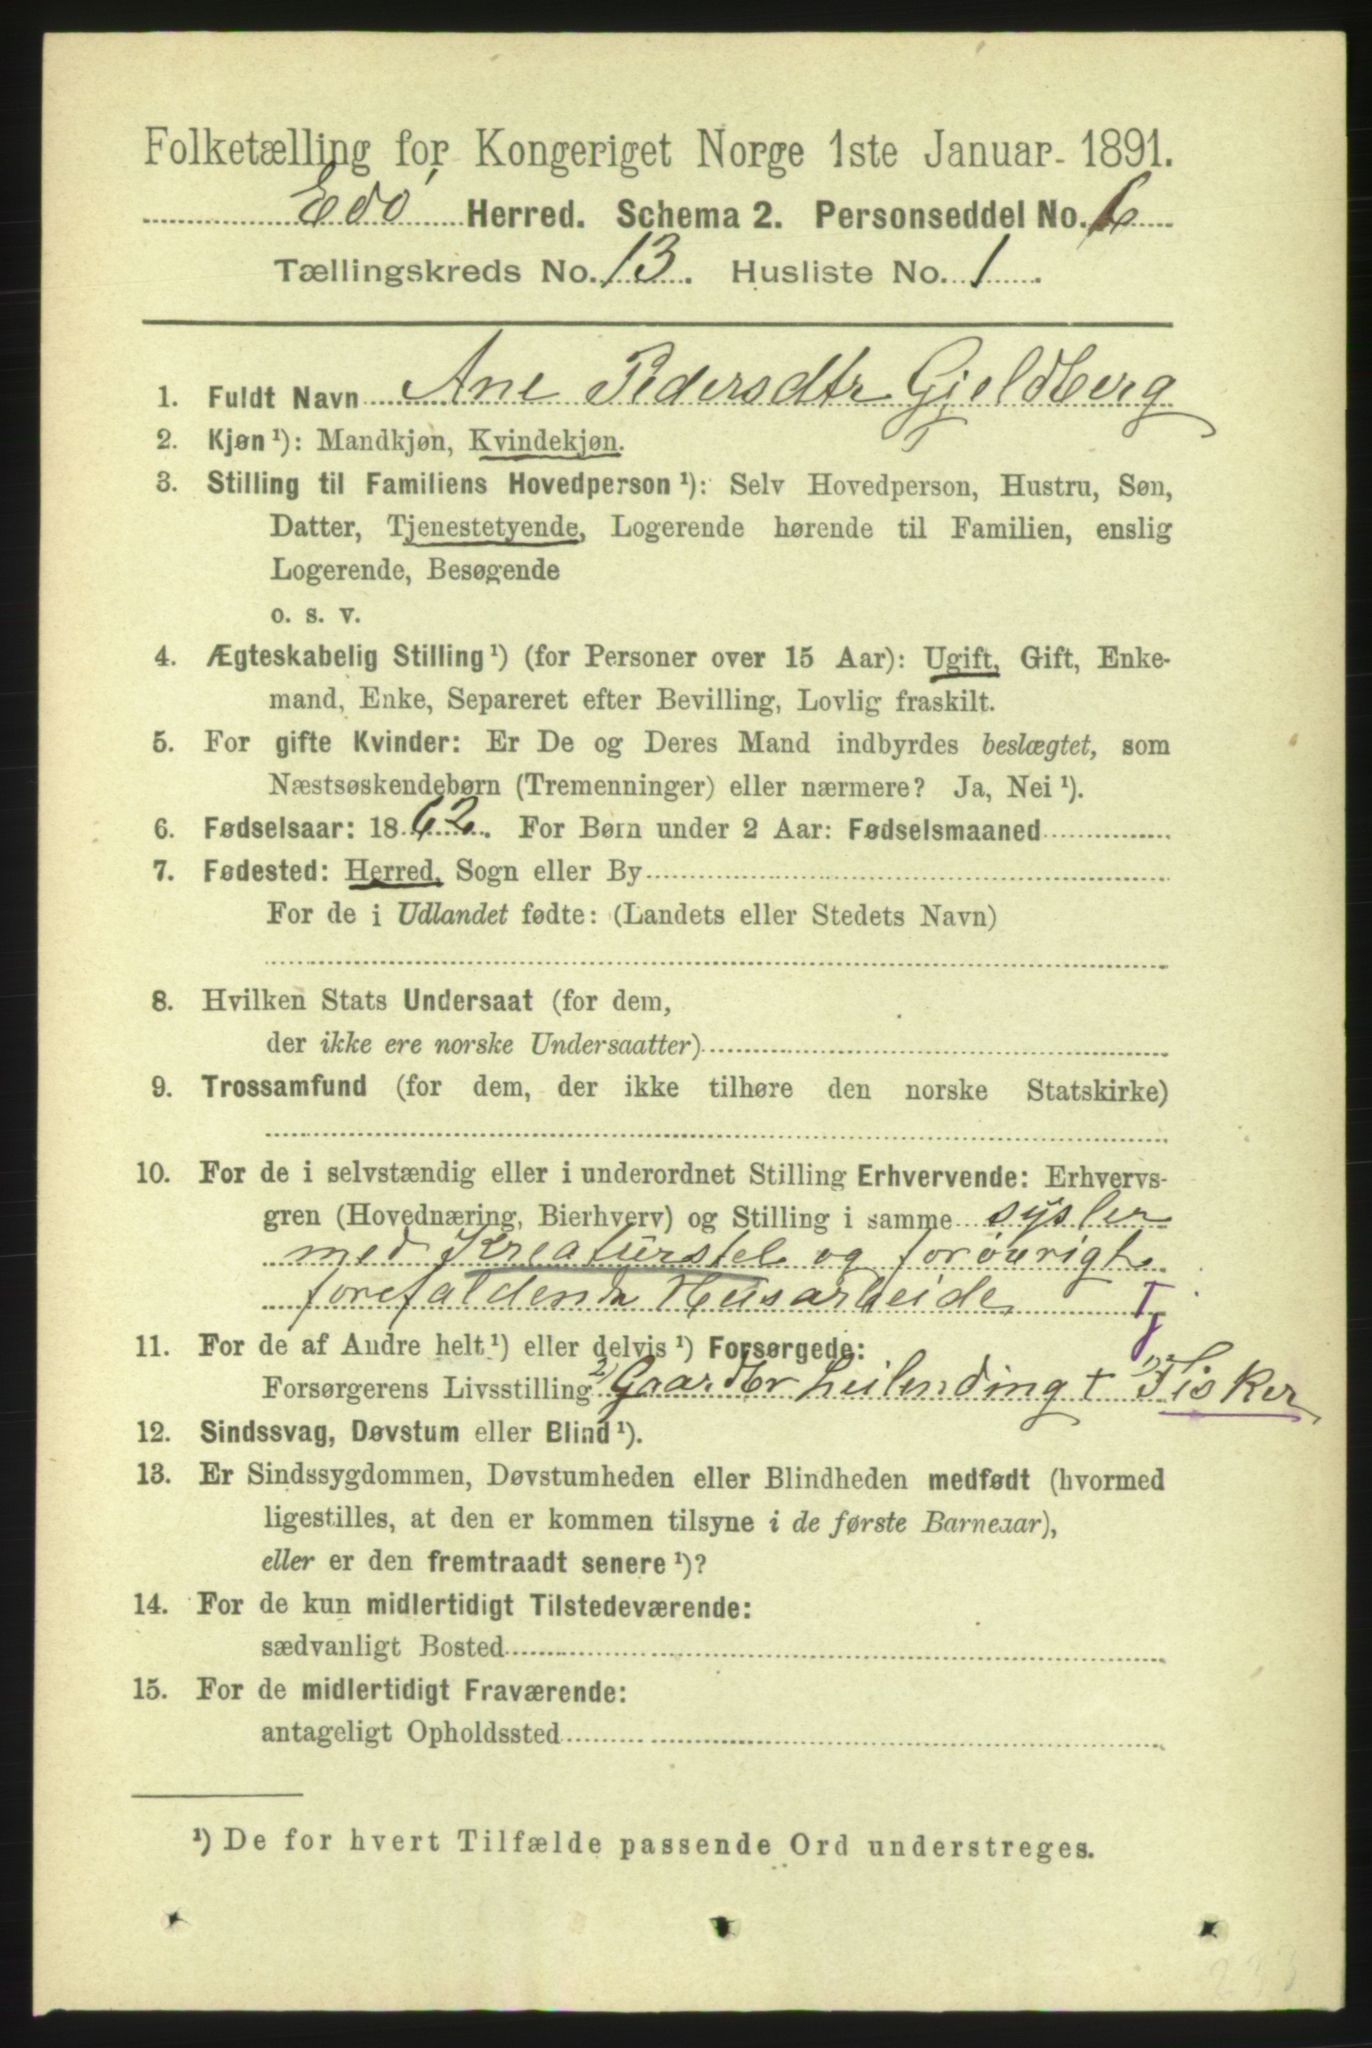 Folketælling for Kongeriget Norge 1ste Januar 1891.
Edö Herred. Schema 2. Personseddel No. 6
Tællingskreds No. 13. Husliste No. 1.
1. Fuldt Navn Ane Pedersdtr Gjeldberg
2. Kjøn ¹): Mandkjøn, Kvindekjøn.
3. Stilling til Familiens Hovedperson ¹): Selv Hovedperson, Hustru, Søn,
Datter, Tjenestetyende, Logerende hørende til Familien, enslig
Logerende, Besøgende
o. s. v.
4. Ægteskabelig Stilling ¹) (for Personer over 15 Aar): Ugift, Gift, Enke-
mand, Enke, Separeret efter Bevilling, Lovlig fraskilt.
5. For gifte Kvinder: Er De og Deres Mand indbyrdes beslægtet, som
Næstsøskendebørn (Tremenninger) eller nærmere? Ja, Nei ¹).
6. Fødselsaar: 1862. For Børn under 2 Aar: Fødselsmaaned
7. Fødested: Herred, Sogn eller By
For de i Udlandet fødte: (Landets eller Stedets Navn)
8. Hvilken Stats Undersaat (for dem,
der ikke ere norske Undersaatter)
9. Trossamfund (for dem, der ikke tilhøre den norske Statskirke)
10. For de i selvstændig eller i underordnet Stilling Erhvervende: Erhvervs-
gren (Hovednæring, Bierhverv) og Stilling i samme sysler
med Kreaturstel og forøvrigt
forefaldende Husarbeide Tj
11. For de af Andre helt ¹) eller delvis ¹) Forsørgede:
Forsørgerens Livsstilling 2) Gaardbr Leilending + 1) Fisker
12. Sindssvag, Døvstum eller Blind ¹).
13. Er Sindssygdommen, Døvstumheden eller Blindheden medfødt (hvormed
ligestilles, at den er kommen tilsyne i de første Barneaar),
eller er den fremtraadt senere ¹)?
14. For de kun midlertidigt Tilstedeværende:
sædvanligt Bosted
15. For de midlertidigt Fraværende:
antageligt Opholdssted
¹) De for hvert Tilfælde passende Ord understreges.